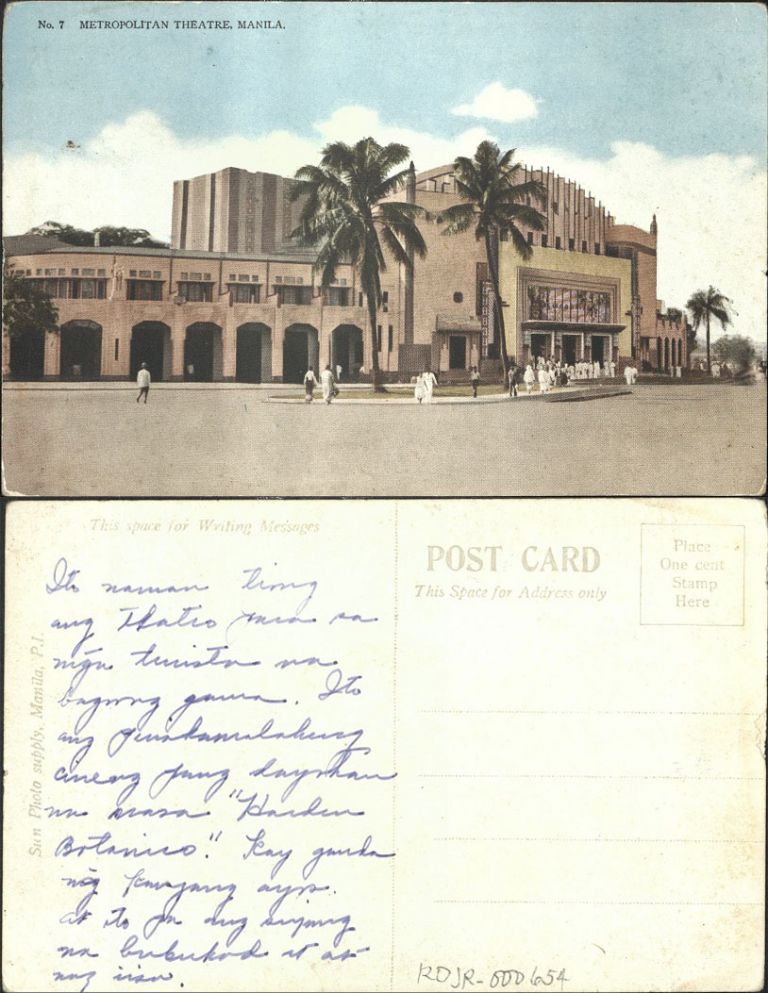 No. 7 METROPOLITAN THEATRE, MANILA.
This space for Writing Messages
POST CARD
This Space for Address only
Place
One cent
Stamp
Here
Sun Photo supply, Manila, P.I.
Ito naman
ang para sa
mga turista na
bagong gawa. Ito
ang pinakamalaking
cineng pang
na nasa "Harden
Botanico". Kay ganda
ng kanyang ayos.
at ito pa ang
na bubukod it at
nag iisa.
RDJR-000654